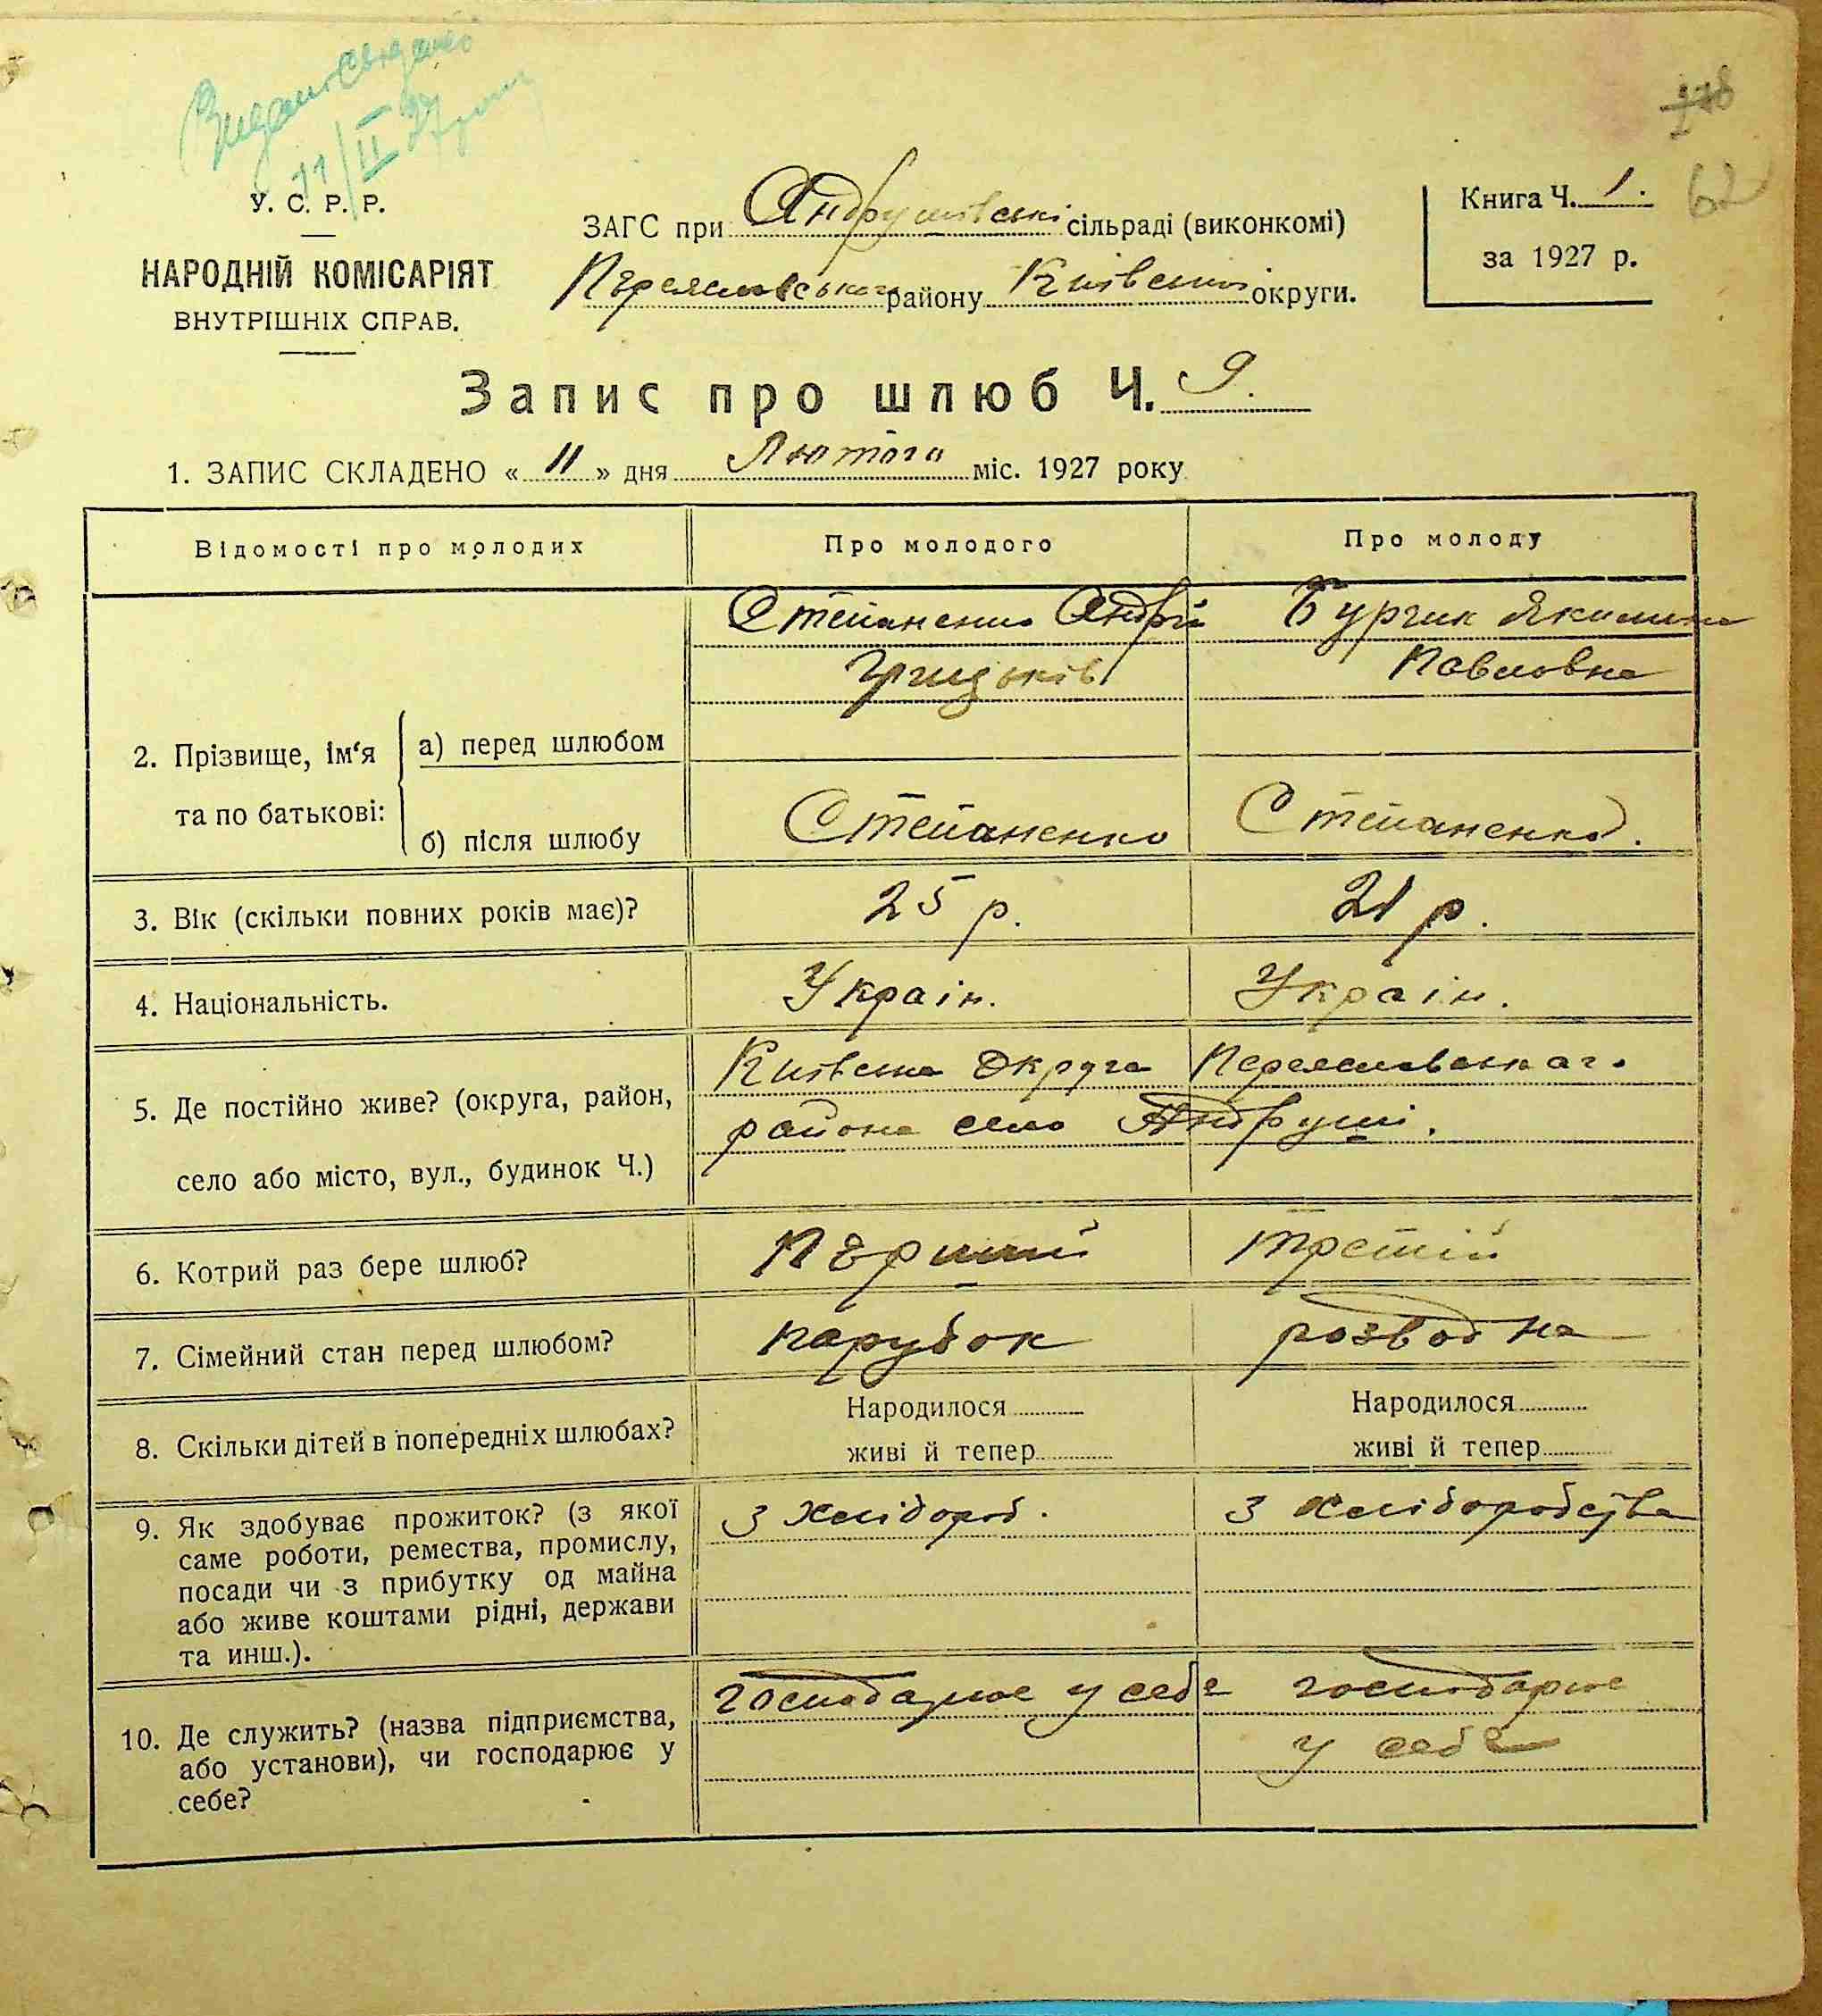 Видано свидот
11/II 27 року
62
У. С. Р. Р.
НАРОДНІЙ КОМІСАРІЯТ
ВНУТРІШНІХ СПРАВ.
ЗАГС при Андрушівські сільраді (виконкомі)
Переяславського району Київської округи.
Книга Ч. 1.
за 1927 р.
Запис про шлюб Ч. 9.
1. ЗАПИС СКЛАДЕНО « 11 » дня Лютого міс. 1927 року
Відомості про молодих Про молодого Про молоду
Степаненко Андрій Бурчик Якилина
Грицьків Павловна
2. Прізвище, ім‘я та по батькові:
а) перед шлюбом
б) після шлюбу Степаненко Степаненко.
3. Вік (скільки повних років має)? 25 р. 21 р.
4. Національність. Україн. Україн.
5. Де постійно живе? (округа, район, Київська Округа Переяславськаго
село або місто, вул., будинок Ч.) района село Андруші.
6. Котрий раз бере шлюб? Перший третій
7. Сімейний стан перед шлюбом? парубок розводна
8. Скільки дітей в попередніх шлюбах? Народилося Народилося
живі й тепер живі й тепер
9. Як здобуває прожиток? (з якої з хлібороб. з хліборобства
саме роботи, ремества, промислу,
посади чи з прибутку од майна
або живе коштами рідні, держави
та инш.).
10. Де служить? (назва підприємства, господарює у себе господарює
або установи), чи господарює у у себе
себе?